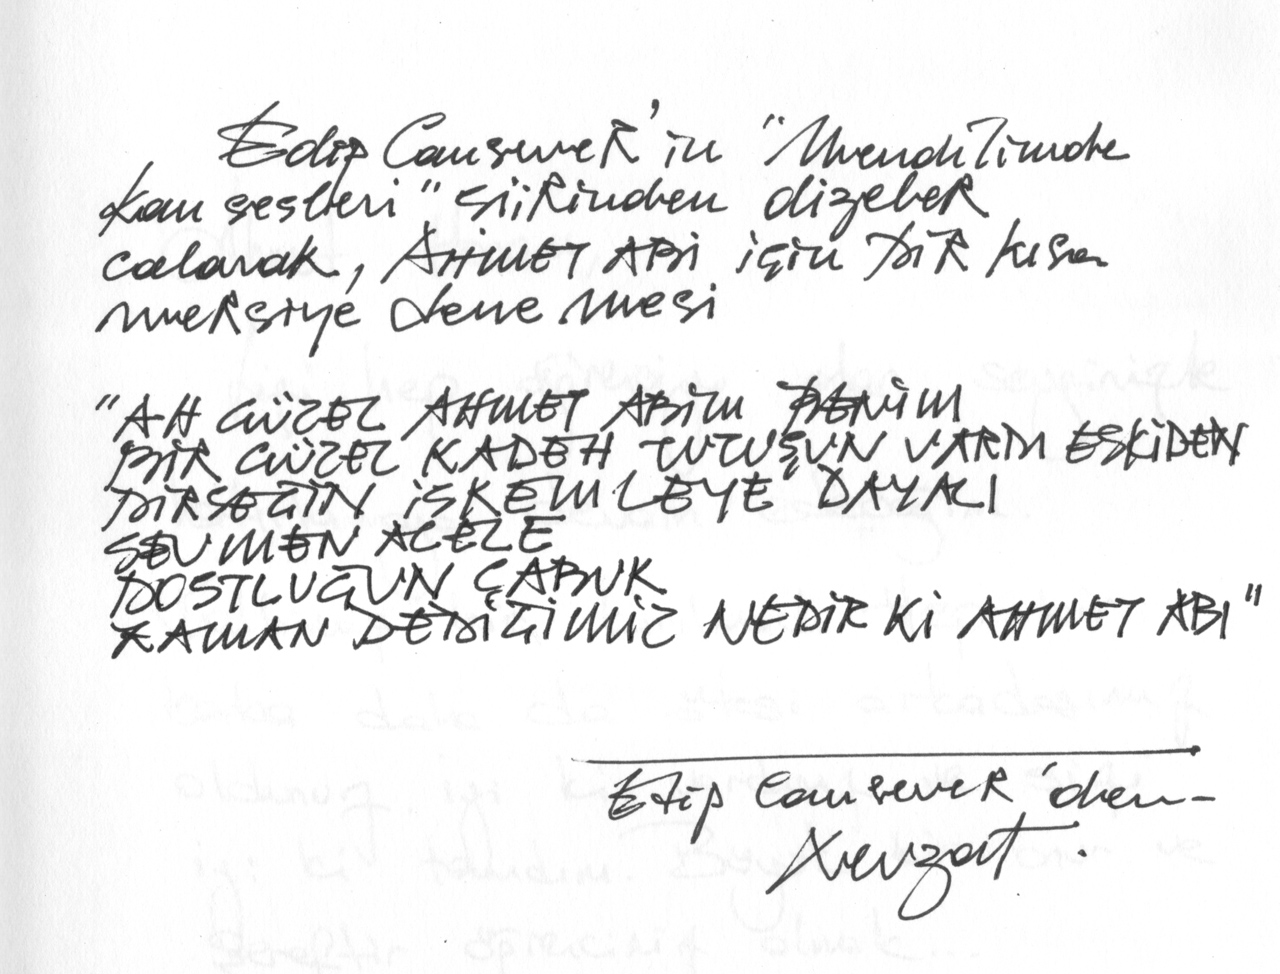 Edip Cansever'in "Mendilimde
kan sesleri" şiirinden dizeler
çalarak, AHMET ABİ için bir kısa
mersiye denemesi
"AH GÜZEL AHMET ABİM BENİM
BİR GÜZEL KADEH TUTUŞUN VARDI ESKİDEN
DİRSEĞİN İSKEMLEYE DAYALI
SEVMEN ACELE
DOSTLUĞUN ÇABUK
ZAMAN DEDİĞİMİZ NEDİR Kİ AHMET ABI"
Edip Cansever'den
Nevzat.